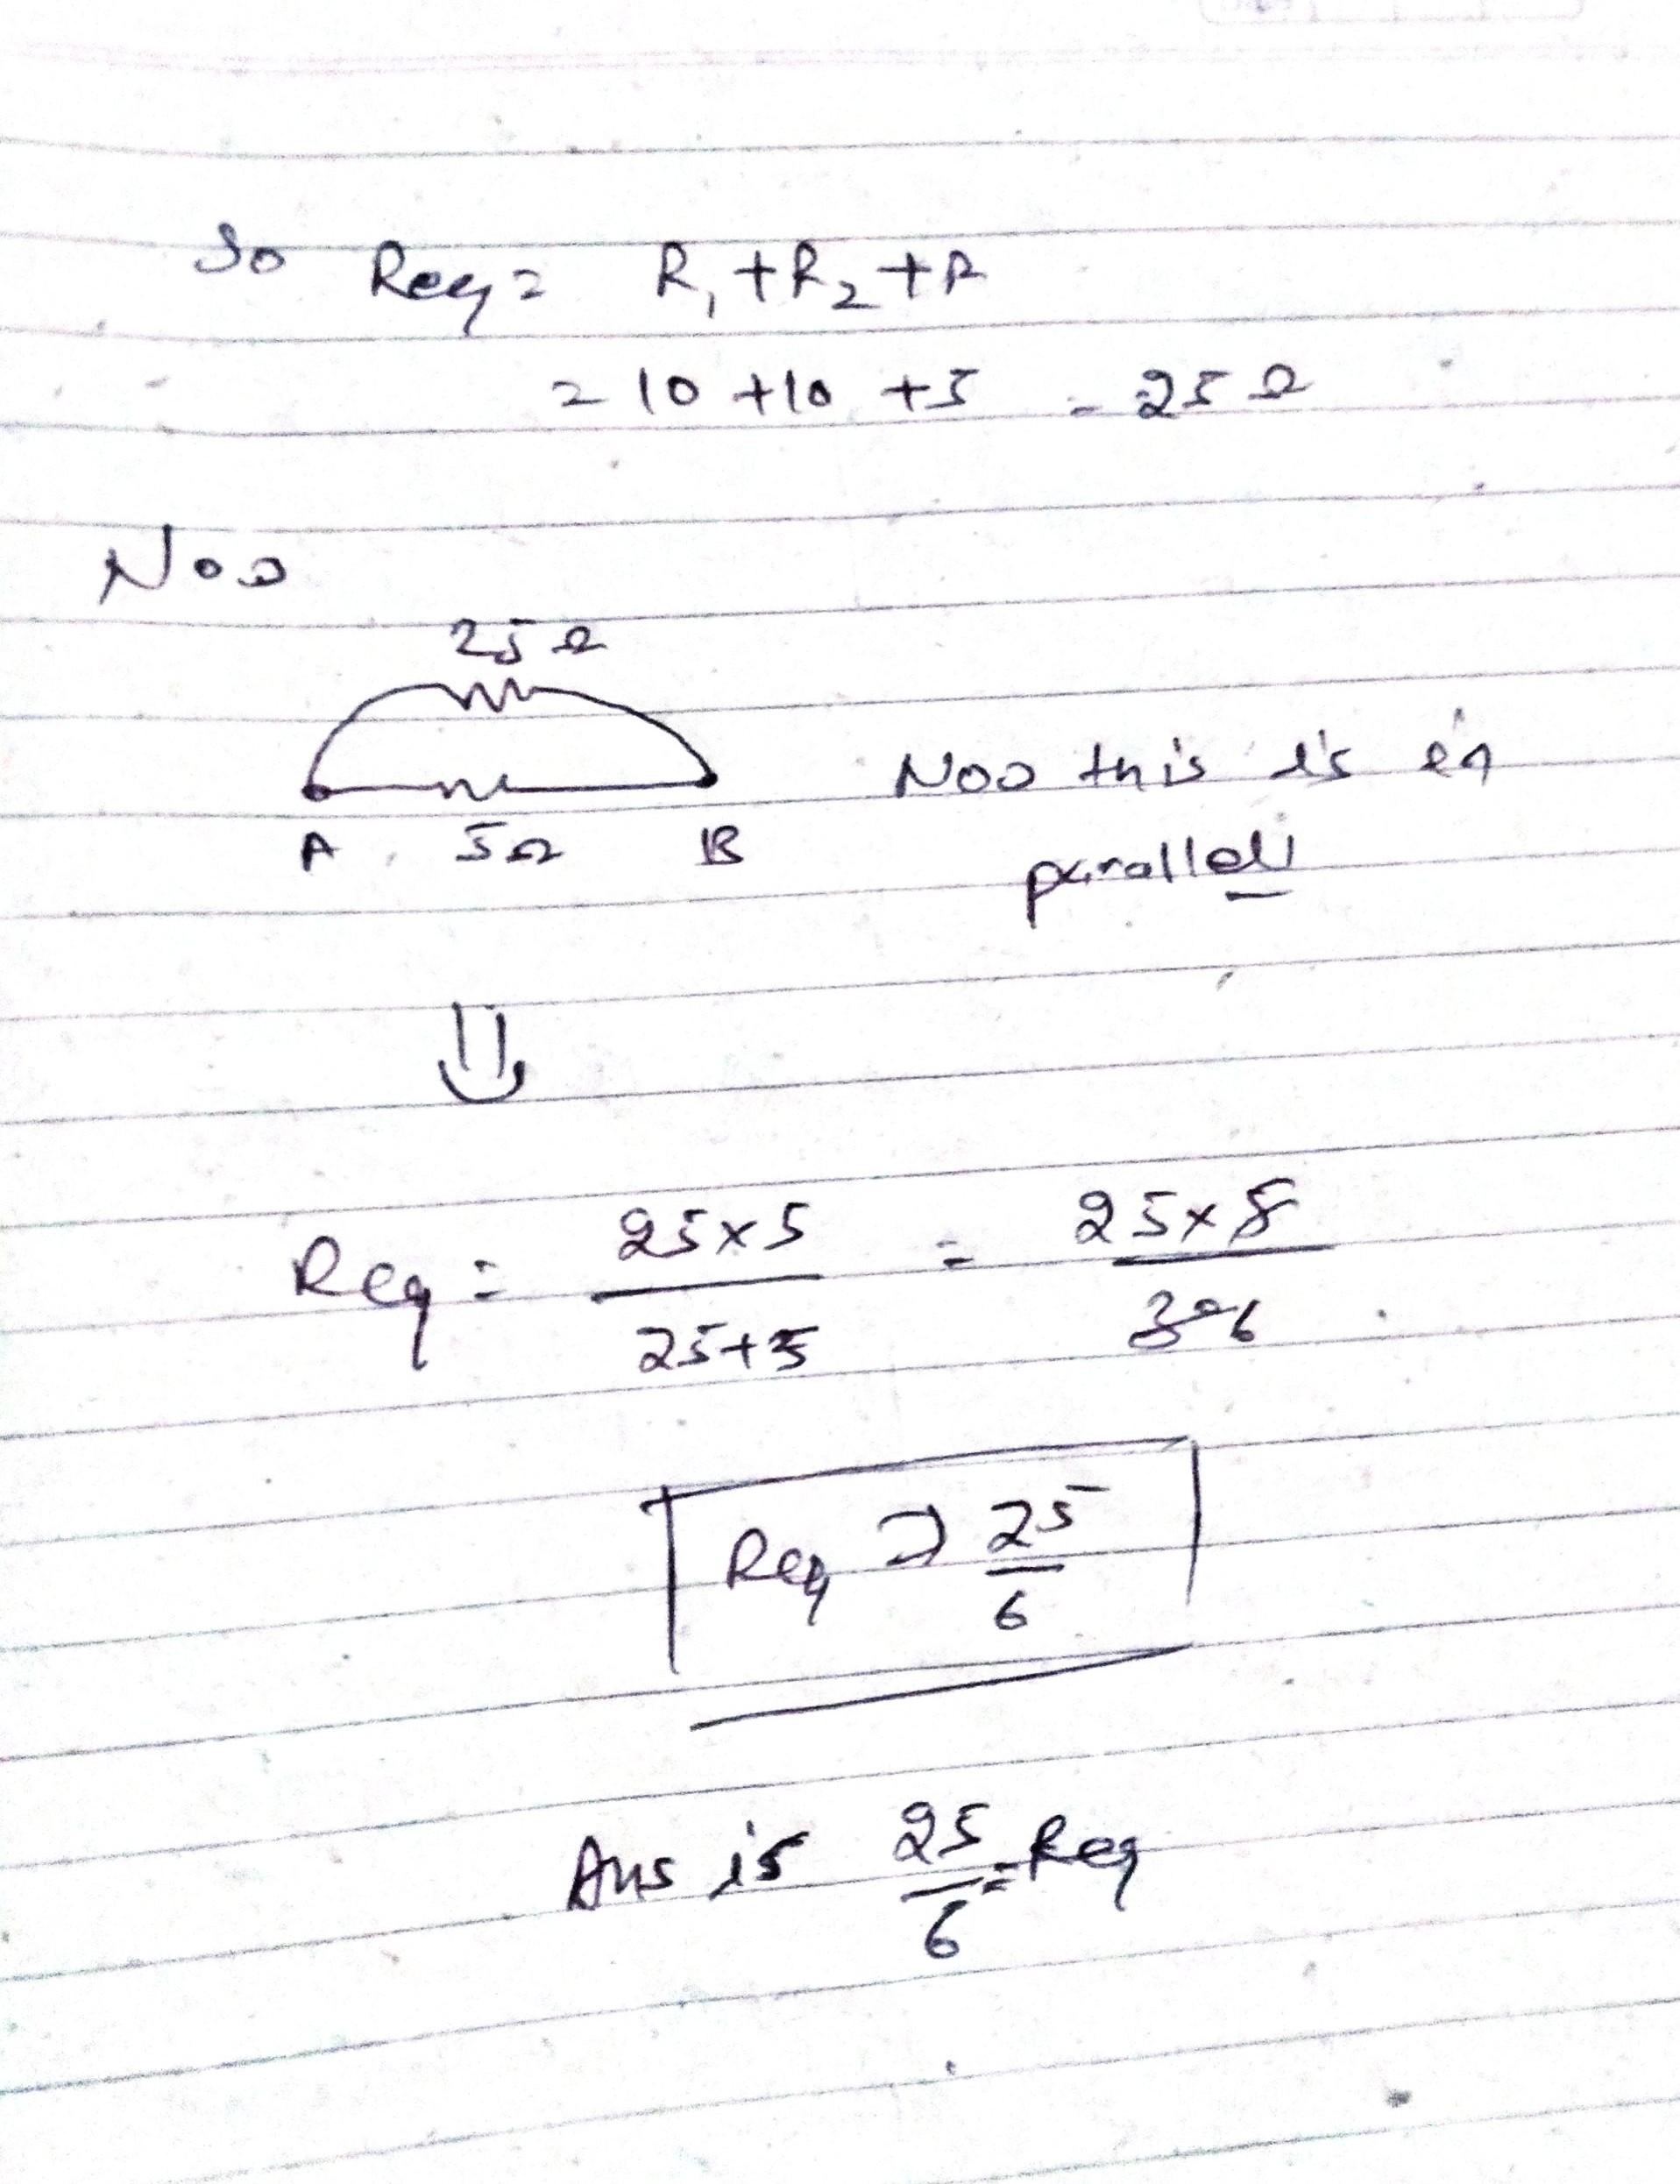 So Req = R₁ + R₂ + R
= 10 + 10 + 5 = 25 Ω
Noo
25 Ω
A 5 Ω B
Noo this is in
parallel
⇓
Req = 25×5/25+5 = 25×5/30 6
Req ⇒ 25/6
Ans is 25/6 = Req